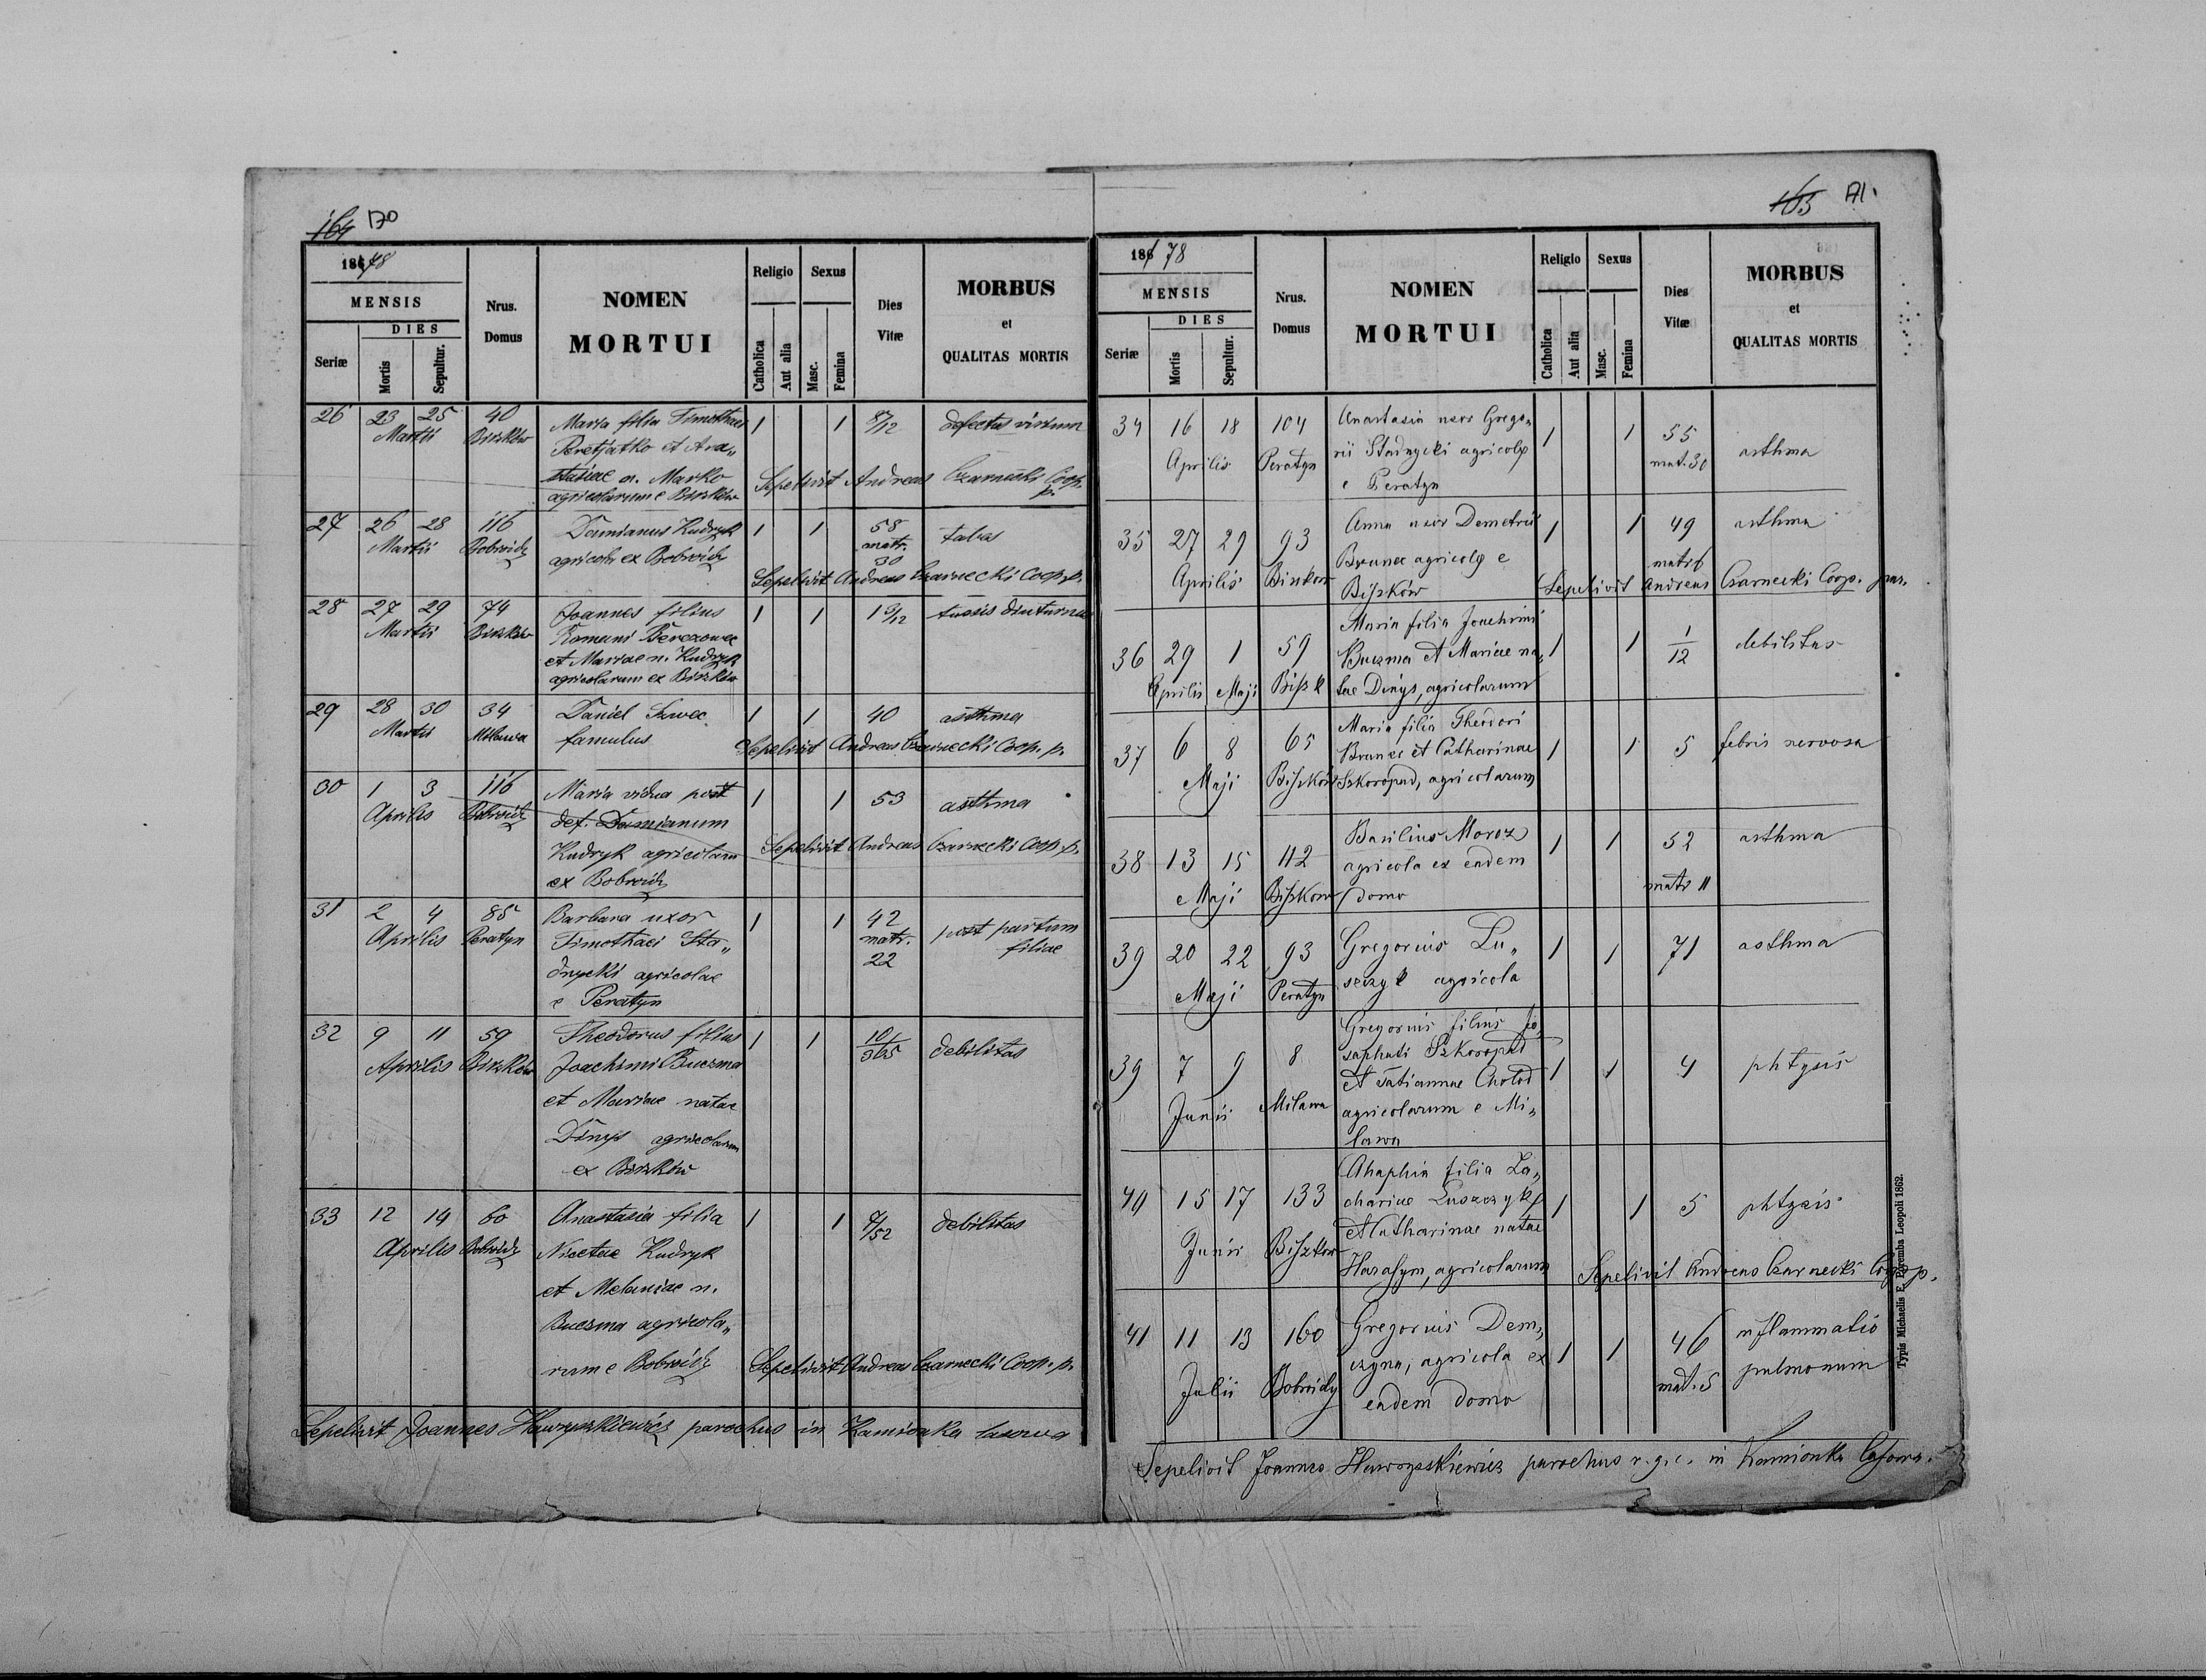 164 170
1878
MENSIS
DIES
Seriæ Mortis Sepultur.
Nrus. Domus
NOMEN MORTUI
Religio
Catholica Aut alia
Sexus
Masc. Femina
Dies Vitæ
MORBUS et QUALITAS MORTIS
26 23 25 40 Maria filia Timothaei 1 1 8/12 defectus virium
Martii Biszków Peretjatko et Ana„
stasiae n. Marko Sepelivit Andreas Czarnecki Coop.
agricolarum e Biszków p.
27 26 28 116 Damianus Kudryk 1 1 58 tabes
Martii Bobroidy agricola ex Bobroidy matr.
30
Sepelivit Andreas Czarnecki Coop. p.
28 27 29 74 Joannes filius 1 1 1 5/12 tussis diuturna
Martii Biszków Romani Berezowec
et Mariae n. Kudryk
agricolarum ex Biszków
29 28 30 34 Daniel Szwec 1 1 40 asthma
Martii Milawa famulus Sepelivit Andreas Czarnecki Coop. p.
30 1 3 116 Maria vidua post 1 1 53 asthma
Aprilis Bobroidy def. Damianum
Kudryk agricolam Sepelivit Andreas Czarnecki Coop. p.
ex Bobroidy
31 2 4 85 Barbara uxor 1 1 42 post partum
Aprilis Peratyn Timothaei Sta„ matr. filiae
dnycki agricolae 22
e Peratyn
32 9 11 59 Theodorus filius 1 1 10/365 debilitas
Aprilis Biszków Joachimi Buczma
et Mariae natae
Dinys agricolarum
ex Biszków
33 12 14 60 Anastasia filia 1 1 /52 debilitas
Aprilis Bobroidy Nicetae Kudryk
et Melaniae n.
Buczma agricola„
rum e Bobroidy Sepelivit Andreas Czarnecki Coop. p.
Sepelivit Joannes Hawryszkiewicz parochus in Kamionka lasowa
165 171.
1878
MENSIS
DIES
Seriæ Mortis Sepultur.
Nrus. Domus
NOMEN MORTUI
Religio
Catholica Aut alia
Sexus
Masc. Femina
Dies Vitæ
MORBUS et QUALITAS MORTIS
34 16 18 104 Anastasia uxor Grego„ 1 1 55 asthma
Aprilis Peratyn rii Stadnycki agricolæ mat. 30
e Peratyn
35 27 29 93 Anna uxor Demetrii 1 1 49 asthma
Aprilis Biszkow Brunec agricolæ e matr 6
Biszków Sepelivit Andreas Czarnecki Coop. par.
36 29 1 59 Maria filia Joachimi 1 1 1/12 debilitas
Aprilis Maji Biszk Buczma et Mariae na„
tae Dinys, agricolarum
37 6 8 65 Maria filia Theodori 1 1 5 febris nervosa
Maji Biszków Brunec et Catharinae
Szkoropad, agricolarum
38 13 15 112 Basilius Moroz 1 1 52 asthma
Maji Biszkow agricola ex eadem matr 11
domo
39 20 22 93 Gregorius Lu„ 1 1 71 asthma
Maji Peratyn szczyk agricola
39 7 9 8 Gregorius filius Jo„ 1 1 4 phtysis
Junii Milawa saphati Szkoropad
et Tatiannae Chołod
agricolarum e Mi„
lawa
40 15 17 133 Ahaphia filia Za„ 1 1 5 phtysis
Junii Biszkow chariae Luszczyk
et Catharinae natae
Harasym, agricolarum Sepelivit Andreas Czarnecki Coop p.
41 11 13 160 Gregorius Dem„ 1 1 46 inflammatio
Julii Bobroidy czyna, agricola ex mat. 5 pulmonum
eadem domo
Sepelivit Joannes Hawryszkiewicz parochus r.g.c. in Kamionka lasowa.
Typis Michaelis F. Poremba Leopoli 1862.